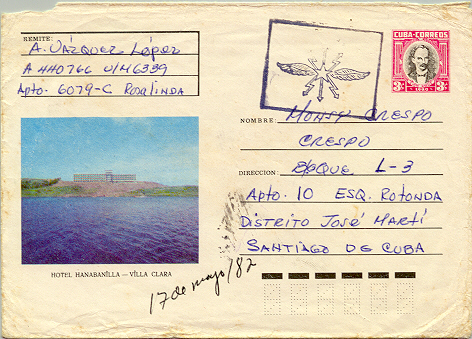 REMITE:
A. VÁZQUEZ LÓPEZ
A 440766 U/M 6339
Apto. 6079-C Rosalinda
CUBA-CORREOS
3¢ 3¢
NOMBRE: MONSY CRESPO
CRESPO
DIRECCION: BLOQUE L-3
Apto. 10 ESQ. ROTONDA
DISTRITO JOSÉ MARTÍ
SANTIAGO DE CUBA
HOTEL HANABANILLA — VILLA CLARA
17 de mayo/82